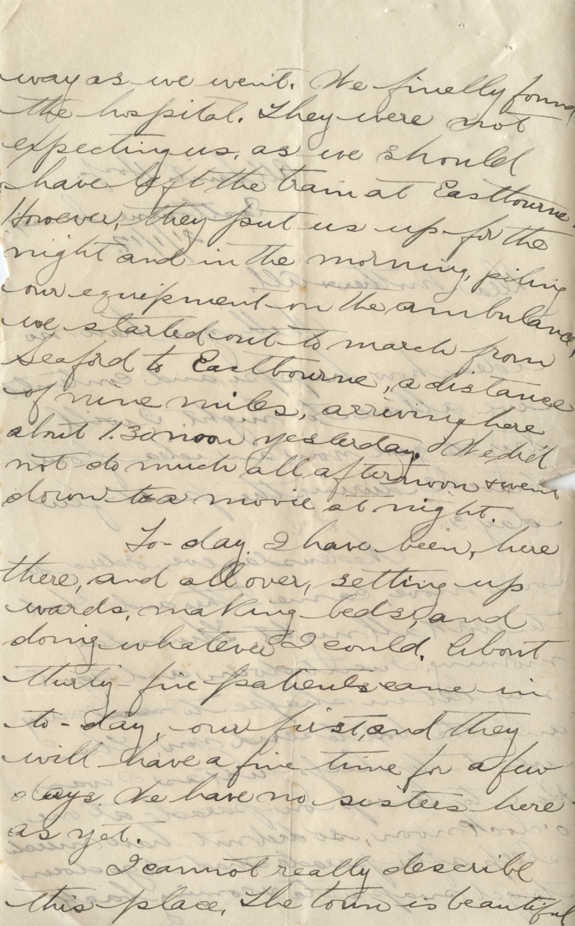 way as we went. We finelly found
the hospital. They were not
expecting us, as we should
have left the train at Eastbourne.
However, they put us up for the
night and in the morning, piling
our equipment on the ambulance,
we started out to march from
Seaford to Eastbourne, a distance
of nine miles, arriving here
about 1.30 noon yesterday. We did
not do much all afternoon & went
down to a movie at night.
To-day I have been, here
there, and all over, setting up
wards, making beds, and
doing whatever I could. About
thirty-five patients came in
to-day, our first, and they
will have a fine time for a few
days. We have no sisters here
as yet.
I cannot really describe
this place. The town is beautiful